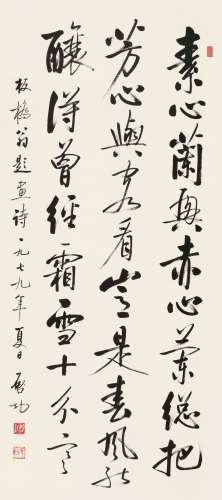 素心蘭與赤心蘭總把
芳心與客看豈是春風能
釀得曾經霜雪十分寒
板橋翁題畫詩一九七九年夏日啟功